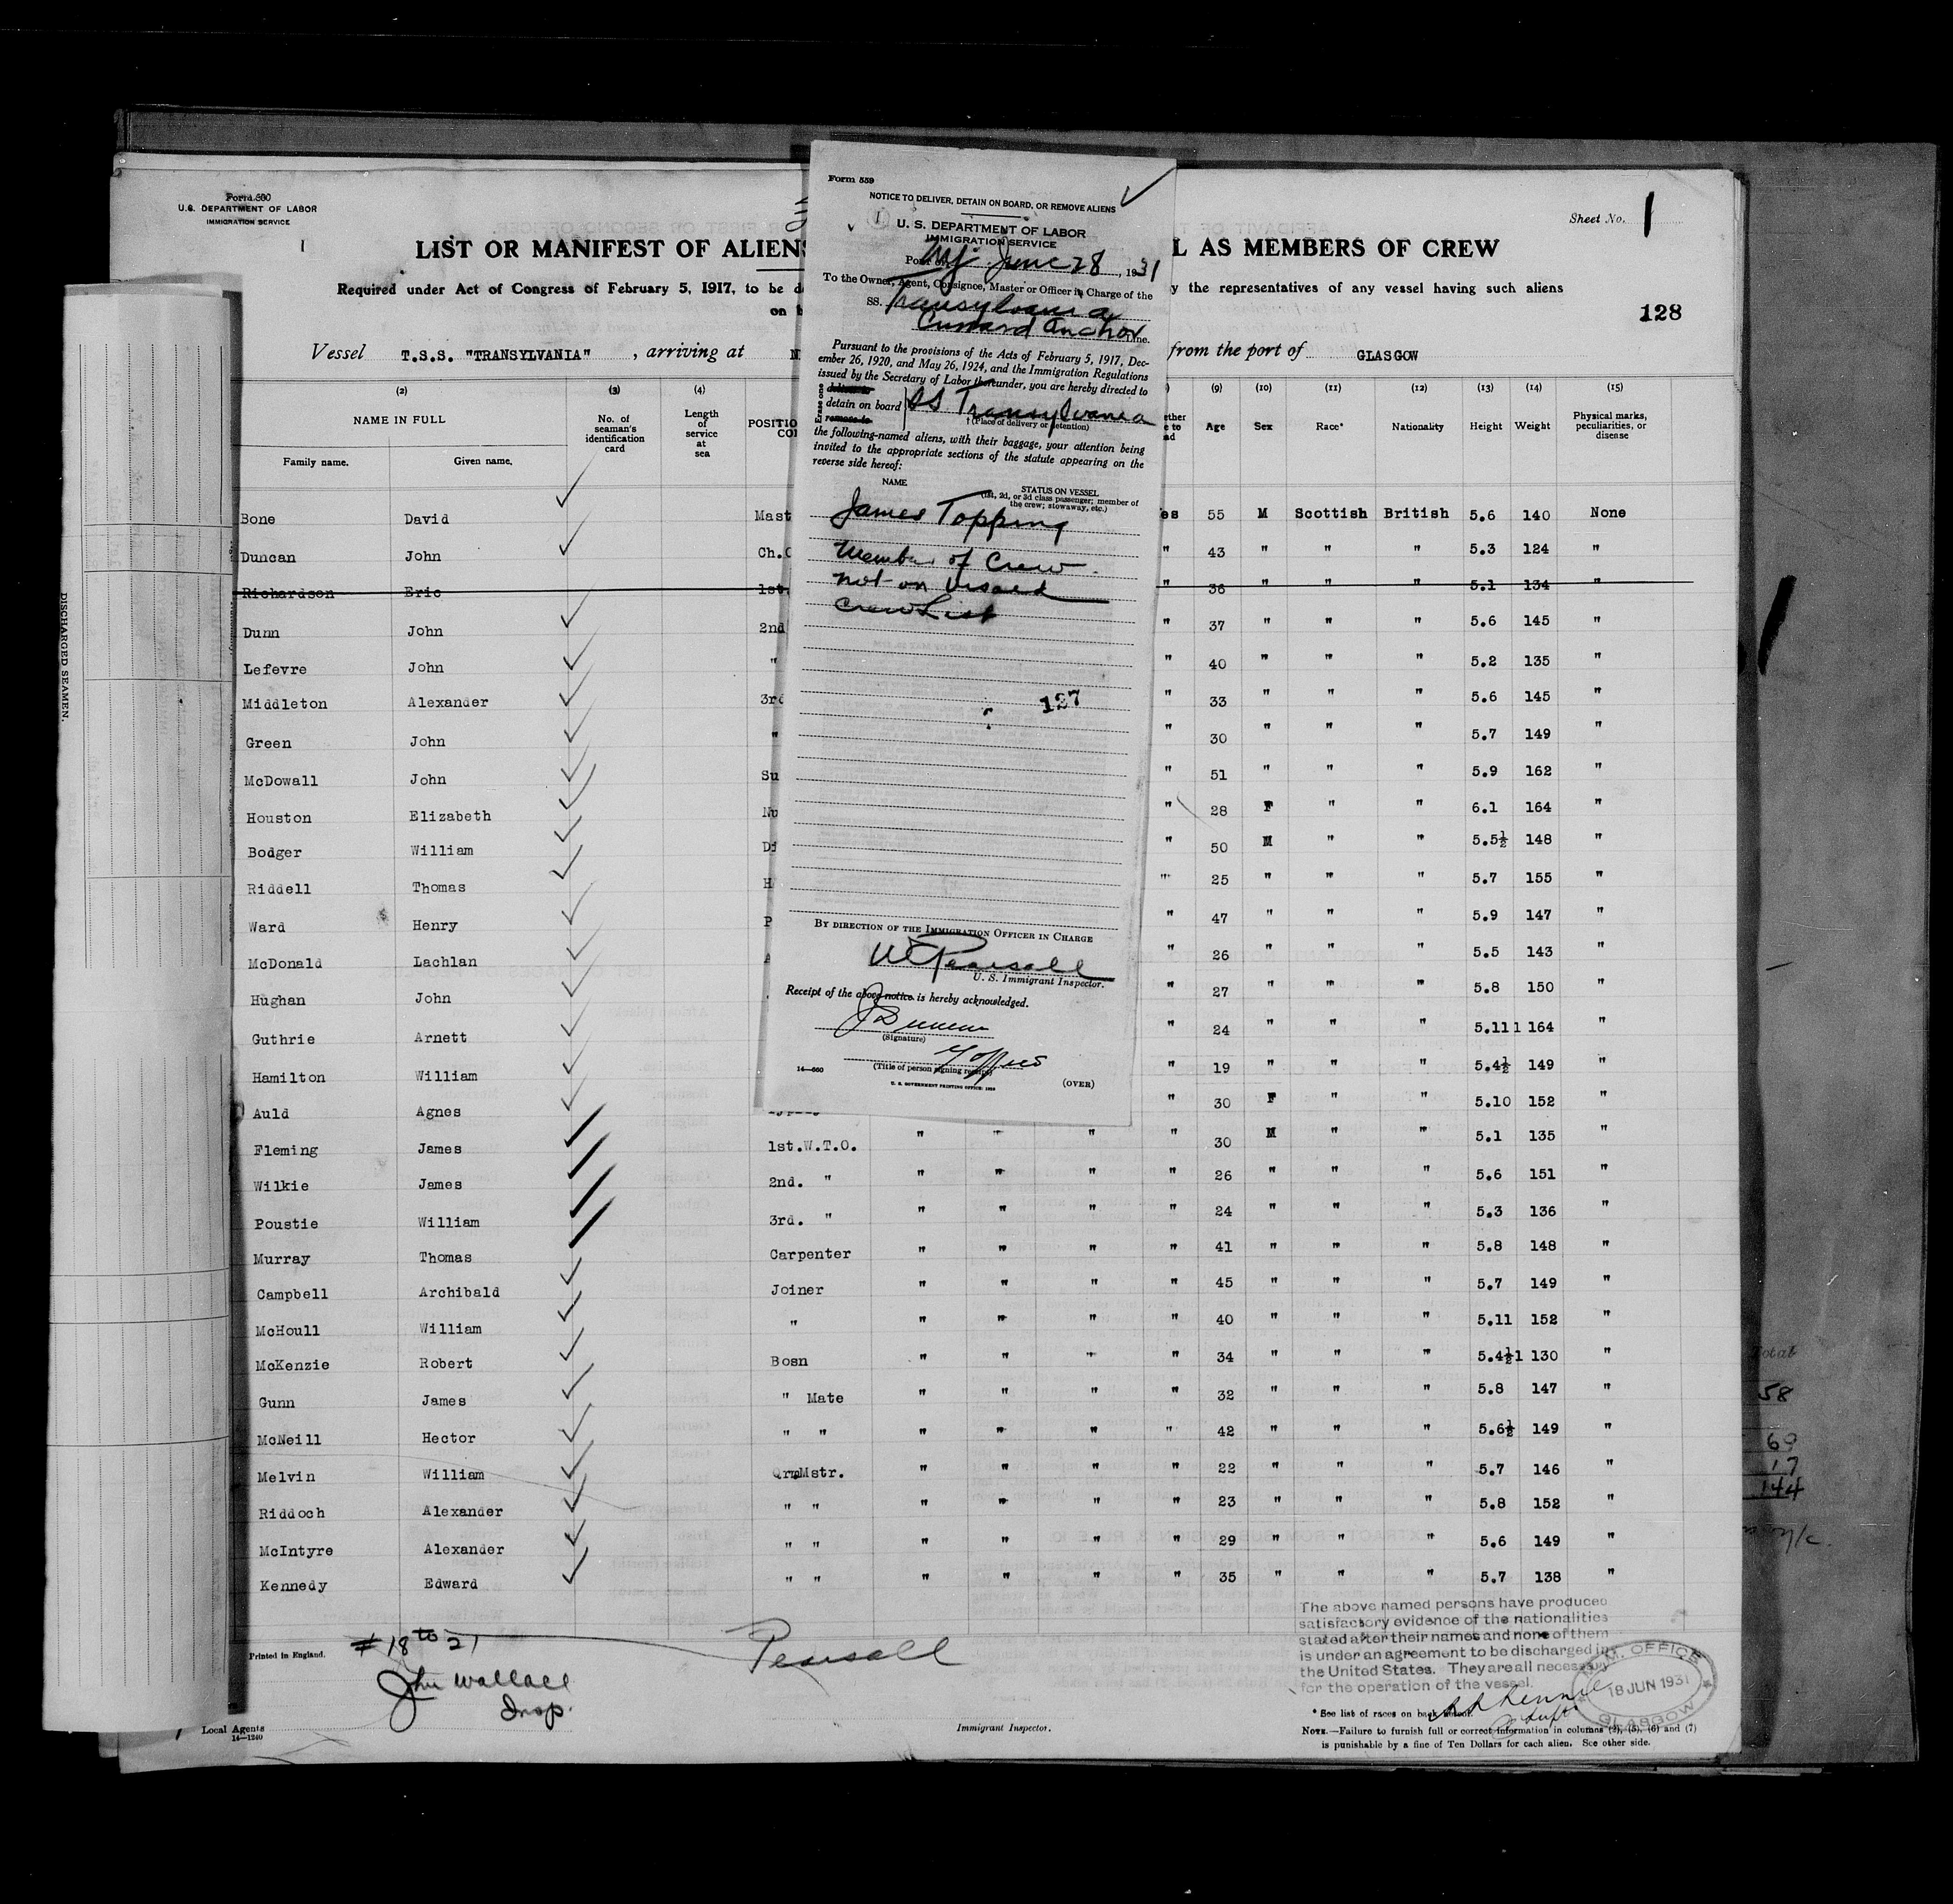 Form 680
U.S. DEPARTMENT OF LABOR
IMMIGRATION SERVICE
Sheet No. 1
LIST OR MANIFEST OF ALIENS
L AS MEMBERS OF CREW
Required under Act of Congress of February 5, 1917, to be d
y the representatives of any vessel having such aliens
on b
128
Vessel T.S.S. "TRANSYLVANIA" , arriving at N
from the port of GLASGOW
(2) (3) (4) (9) (10) (11) (12) (13) (14) (15)
NAME IN FULL
Family name. Given name.
No. of seaman's identification card
Length of service at sea
POSITIO
Age Sex Race* Nationality Height Weight
Physical marks, peculiarities, or disease
Bone David Mast es 55 M Scottish British 5.6 140 None
Duncan John Ch.O " 43 " " " 5.3 124 "
Richardson Eric 1st. " 36 " " " 5.1 134 "
Dunn John 2nd " 37 " " " 5.6 145 "
Lefevre John " " 40 " " " 5.2 135 "
Middleton Alexander 3rd " 33 " " " 5.6 145 "
Green John " " 30 " " " 5.7 149 "
McDowall John Su " 51 " " " 5.9 162 "
Houston Elizabeth Nu " 28 F " " 6.1 164 "
Bodger William Di " 50 M " " 5.5½ 148 "
Riddell Thomas H " 25 " " " 5.7 155 "
Ward Henry P " 47 " " " 5.9 147 "
McDonald Lachlan A " 26 " " " 5.5 143 "
Hughan John " 27 " " " 5.8 150 "
Guthrie Arnett " 24 " " " 5.11 1 164 "
Hamilton William " 19 " " " 5.4½ 149 "
Auld Agnes " 30 F " " 5.10 152 "
Fleming James 1st.W.T.O. " " " " 30 M " " 5.1 135 "
Wilkie James 2nd. " " " " " 26 " " " 5.6 151 "
Poustie William 3rd. " " " " " 24 " " " 5.3 136 "
Murray Thomas Carpenter " " " " 41 " " " 5.8 148 "
Campbell Archibald Joiner " " " " 45 " " " 5.7 149 "
McHoull William " " " " " 40 " " " 5.11 152 "
McKenzie Robert Bosn " " " " 34 " " " 5.4½1 130 "
Gunn James " Mate " " " " 32 " " " 5.8 147 "
McNeill Hector " " " " " " 42 " " " 5.6½ 149 "
Melvin William QrmMstr. " " " " 22 " " " 5.7 146 "
Riddoch Alexander " " " " " " 23 " " " 5.8 152 "
McIntyre Alexander " " " " " " 29 " " " 5.6 149 "
Kennedy Edward " " " " " " 35 " " " 5.7 138 "
Form 559
NOTICE TO DELIVER, DETAIN ON BOARD, OR REMOVE ALIENS
U. S. DEPARTMENT OF LABOR
IMMIGRATION SERVICE
Port of NY June 28, 1931
To the Owner, Agent, Consignee, Master or Officer in Charge of the
SS. Transylvania
Cunard Anchor Line.
Pursuant to the provisions of the Acts of February 5, 1917, Dec-
ember 26, 1920, and May 26, 1924, and the Immigration Regulations
issued by the Secretary of Labor thereunder, you are hereby directed to
Erase one
deliver to
detain on board SS Transylvania
remove to
† (Place of delivery or detention)
the following-named aliens, with their baggage, your attention being
invited to the appropriate sections of the statute appearing on the
reverse side hereof:
NAME
STATUS ON VESSEL
(1st, 2d, or 3d class passenger; member of
the crew; stowaway, etc.)
James Topping
Member of Crew
not on Visaed
Crew List
127
BY DIRECTION OF THE IMMIGRATION OFFICER IN CHARGE
W Pearsall
U. S. Immigrant Inspector.
Receipt of the above notice is hereby acknowledged.
J Duncan
(Signature)
(Title of person signing receipt)
14—660
U. S. GOVERNMENT PRINTING OFFICE: 1930
(OVER)
DISCHARGED SEAMEN.
Total
58
69
17
144
Printed in England.
# 18 to 21
John Wallace
Insp.
Pearsall
Local Agents
14—1240
Immigrant Inspector.
The above named persons have produced
satisfactory evidence of the nationalities
stated after their names and none of them
is under an agreement to be discharged in
the United States. They are all necessary
for the operation of the vessel.
M.M. OFFICE
18 JUN 1931
GLASGOW
* See list of races on back hereof.
NOTE.—Failure to furnish full or correct information in columns (3), (5), (6) and (7)
is punishable by a fine of Ten Dollars for each alien. See other side.